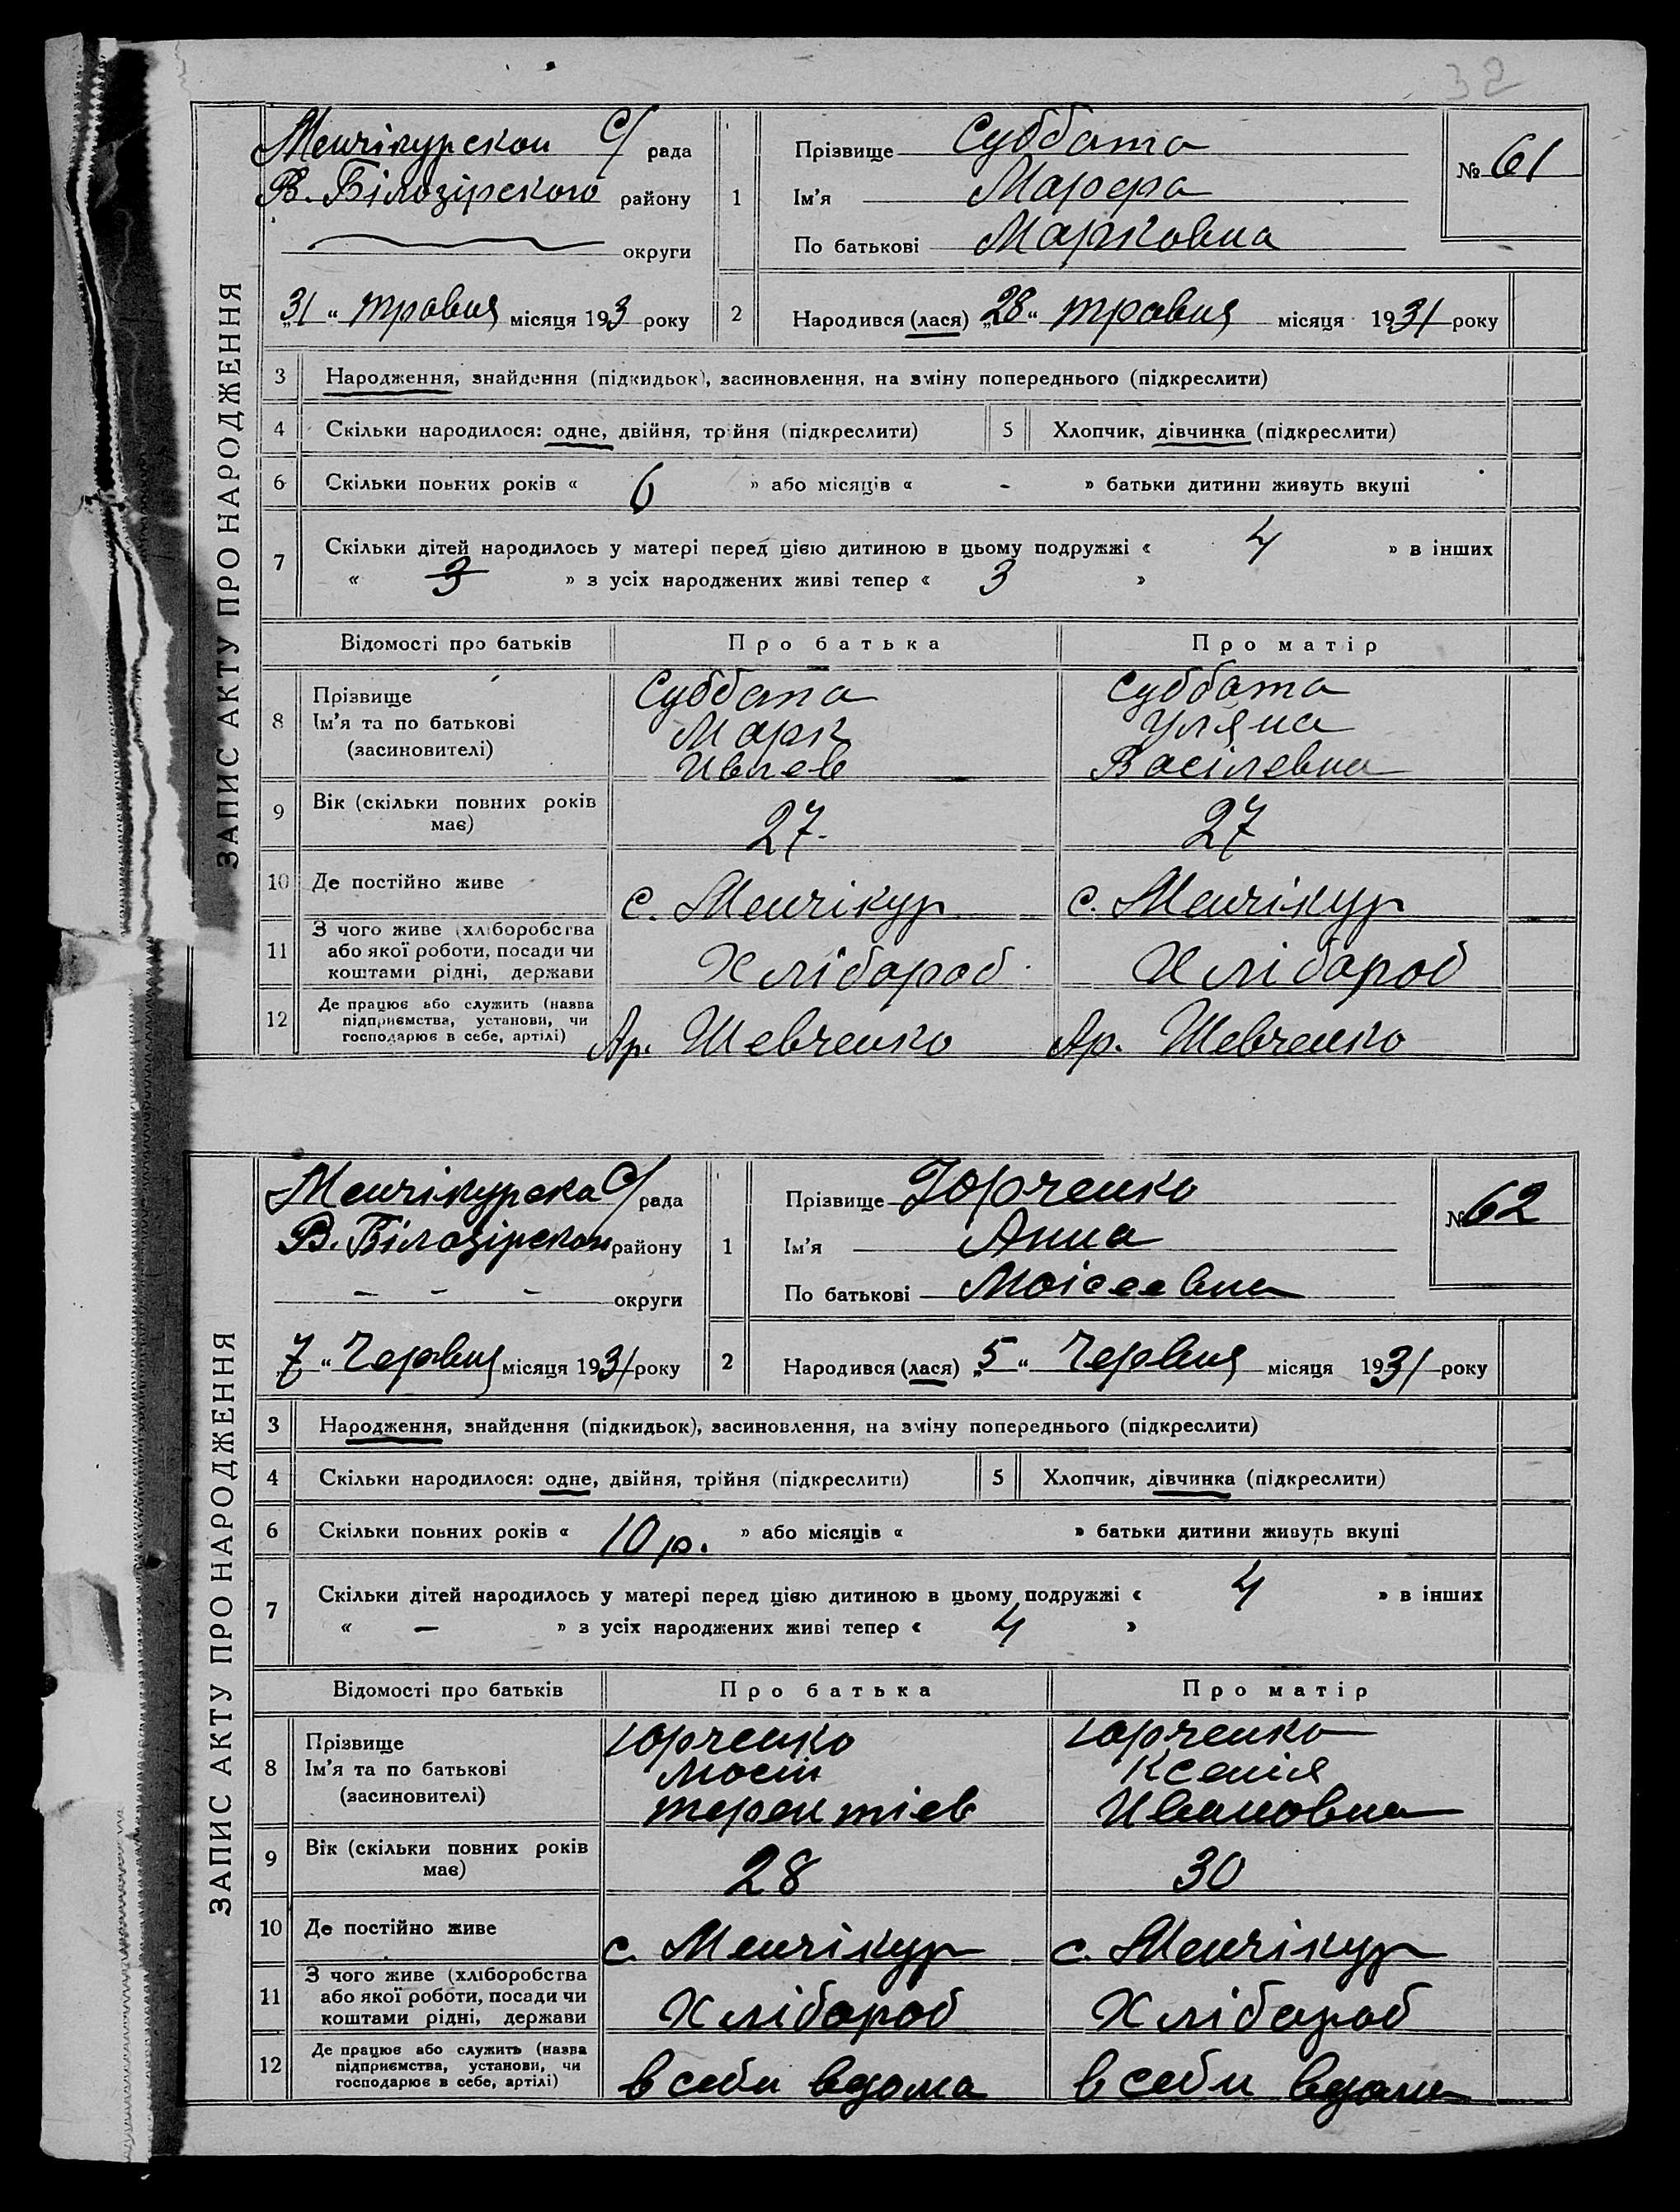 32
ЗАПИС АКТУ ПРО НАРОДЖЕННЯ
Менчікурскои С/ рада
В. Білозірского району
округи
„31“ травня місяця 193 року
1
Прізвище Суббата
Ім'я Марфа
По батькові Марковна
№ 61
2
Народився (лася) „28“ травня місяця 1931 року
3 Народження, знайдення (підкидьок), засиновлення, на зміну попереднього (підкреслити)
4 Скільки народилося: одне, двійня, трійня (підкреслити)
5 Хлопчик, дівчинка (підкреслити)
6 Скільки повних років « 6 » або місяців « - » батьки дитини живуть вкупі
7 Скільки дітей народилось у матері перед цією дитиною в цьому подружжі « 4 » в інших
« 3 » з усіх народжених живі тепер « 3 »
Відомості про батьків Про батька Про матір
8
Прізвище Суббата Суббата
Ім'я та по батькові Марк Уляна
(засиновителі) Ивнев Васілевна
9 Вік (скільки повних років має) 27. 27
10 Де постійно живе с. Менчікур с. Менчікур
11 З чого живе (хліборобства
або якої роботи, посади чи
коштами рідні, держави Хлібороб Хлібороб
12 Де працює або служить (назва
підприємства, установи, чи
господарює в себе, артілі) Ар. Шевченко Ар. Шевченко
ЗАПИС АКТУ ПРО НАРОДЖЕННЯ
Менчікурска С/ рада
В. Білозірскои району
- - - округи
„7“ Червня місяця 1931 року
1
Прізвище Юрченко
Ім'я Анна
По батькові Моісеевна
№ 62
2
Народився (лася) „5“ Червня місяця 1931 року
3 Народження, знайдення (підкидьок), засиновлення, на зміну попереднього (підкреслити)
4 Скільки народилося: одне, двійня, трійня (підкреслити)
5 Хлопчик, дівчинка (підкреслити)
6 Скільки повних років « 10 р. » або місяців « » батьки дитини живуть вкупі
7 Скільки дітей народилось у матері перед цією дитиною в цьому подружжі « 4 » в інших
« — » з усіх народжених живі тепер « 4 »
Відомості про батьків Про батька Про матір
8
Прізвище Юрченко Юрченко
Ім'я та по батькові Мосій Ксения
(засиновителі) терентіев Ивановна
9 Вік (скільки повних років має) 28 30
10 Де постійно живе с. Менчікур с. Менчікур
11 З чого живе (хліборобства
або якої роботи, посади чи
коштами рідні, держави Хлібороб Хлібороб
12 Де працює або служить (назва
підприємства, установи, чи
господарює в себе, артілі) в себи вдома в себи вдома